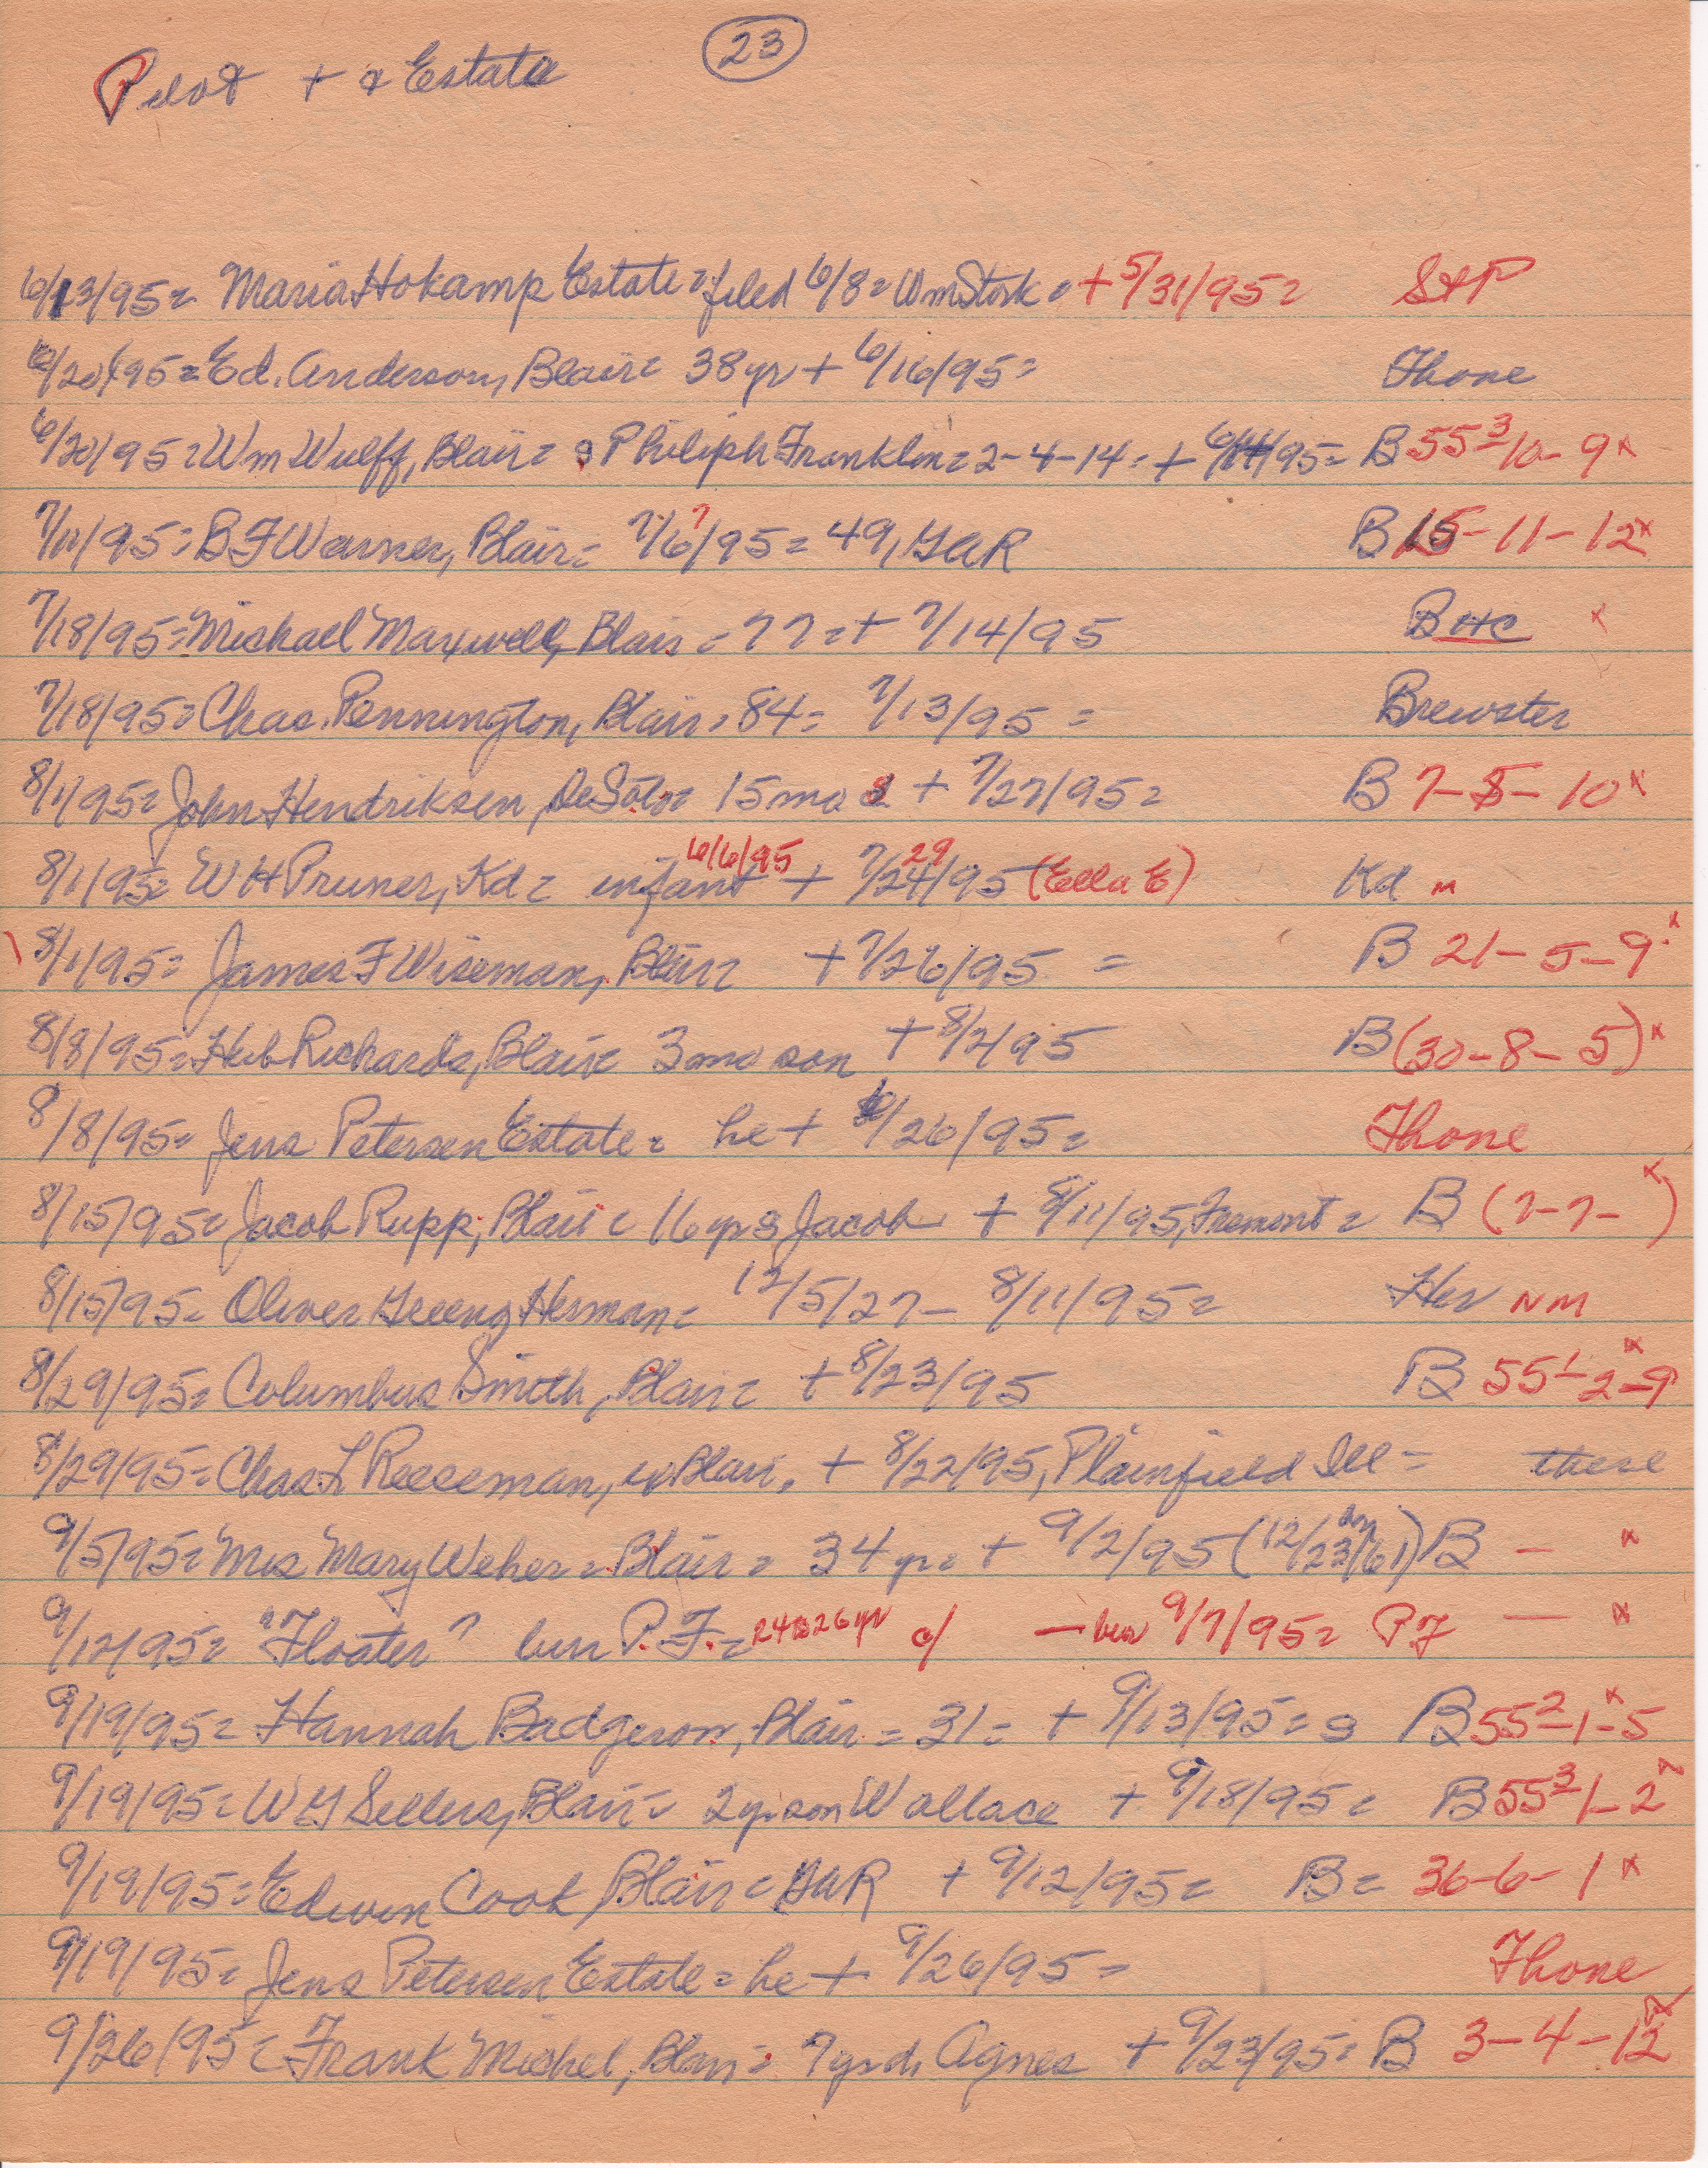 23
Pilot + & Estate
6/13/95= Maria Hokamp Estate= filed 6/8= Wm Stork= + 5/31/95= StP
6/20/95= Ed. Anderson, Blair= 38yr + 6/16/95= Thone
6/20/95= Wm Wulff, Blair= s Philiph Franklin= 2-4-14= + 6/14/95= B 55³-10-9 x
7/11/95= B F Warner, Blair= 7/6/95= 49, GAR B 15-11-12 x
7/18/95= Michael Maxwell, Blair= 77=+ 7/14/95 B HC x
7/18/95= Chas. Pennington, Blair= 84= 7/13/95= Brewster
8/1/95= John Hendriksen, DeSoto= 15mo s + 7/27/95= B 7-5-10 x
6/6/95 29
8/1/95= W H Pruner, Kd= infant + 7/24/95 (Ella E) Kd M
8/1/95= James F Wiseman, Blair= + 7/26/95 = B 21-5-9 x
8/8/95= Heb Richards, Blair= 3mo son + 8/2/95 B (30-8-5) x
8/8/95= Jens Petersen Estate= he + /26/95= Thone
8/15/95= Jacob Rupp, Blair= 16yr s Jacob + 8/11/95, Fremont= B (7-7- ) x
8/15/95= Oliver Herman= 12/5/27- 8/11/95= Her NM
8/29/95= Columbus Smith, Blair= + 8/23/95 B 55¹-2-9 x
8/29/95= Chas L Reeseman, ex Blair, + 8/22/95, Plainfield Ill= there
9/5/95= Mrs Mary Weber= Blair= 34yr= + 9/2/95 (12/23/61) B — x
9/12/95= "Floater" bur P.F.= 24 to 26 yr — bur 9/7/95= PF — x
9/19/95= Hannah Badgerow, Blair= 31= + 9/13/95= s B 55²-1-5 x
9/19/95= W G Sellers, Blair= 2yr son Wallace + 9/18/95= B 55³-1-2 x
9/19/95= Edwin Cook, Blair= GAR + 9/12/95= B= 36-6-1 x
9/19/95= Jens Petersen Estate= he + 9/26/95= Thone
9/26/95= Frank Michel, Blair= 7yr d, Agnes + 9/23/95= B 3-4-12 x